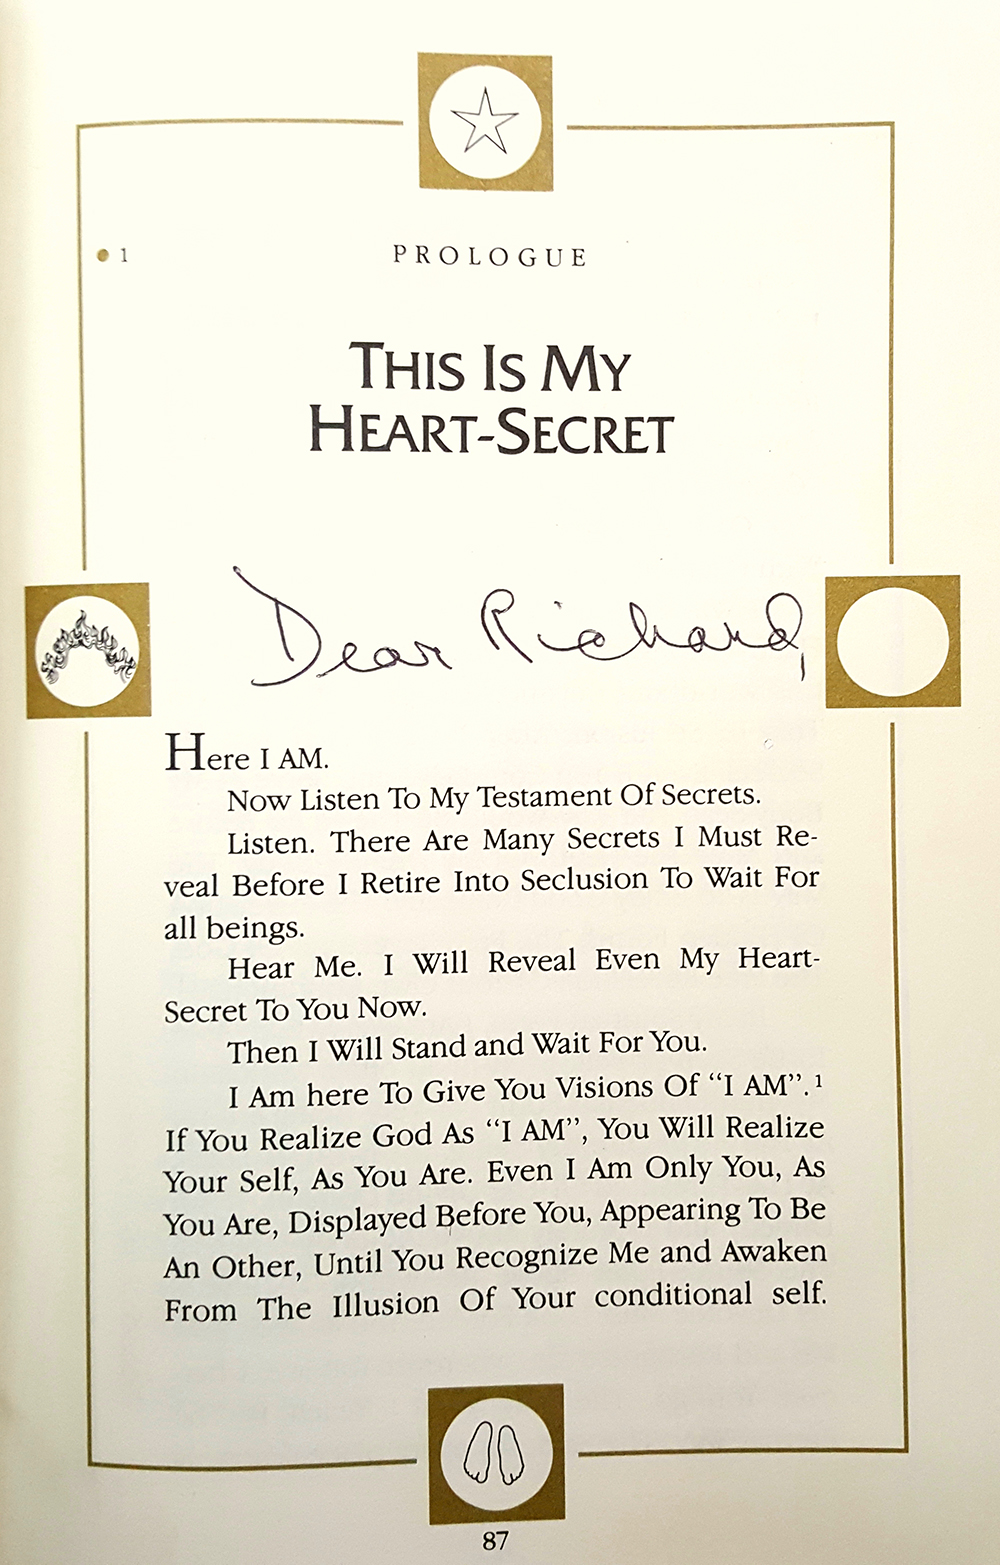 1
PROLOGUE
THIS IS MY
HEART-SECRET
Dear Richard,
Here I AM.
Now Listen To My Testament Of Secrets.
Listen. There Are Many Secrets I Must Re-
veal Before I Retire Into Seclusion To Wait For
all beings.
Hear Me. I Will Reveal Even My Heart-
Secret To You Now.
Then I Will Stand and Wait For You.
I Am here To Give You Visions Of “I AM”.¹
If You Realize God As “I AM”, You Will Realize
Your Self, As You Are. Even I Am Only You, As
You Are, Displayed Before You, Appearing To Be
An Other, Until You Recognize Me and Awaken
From The Illusion Of Your conditional self.
87